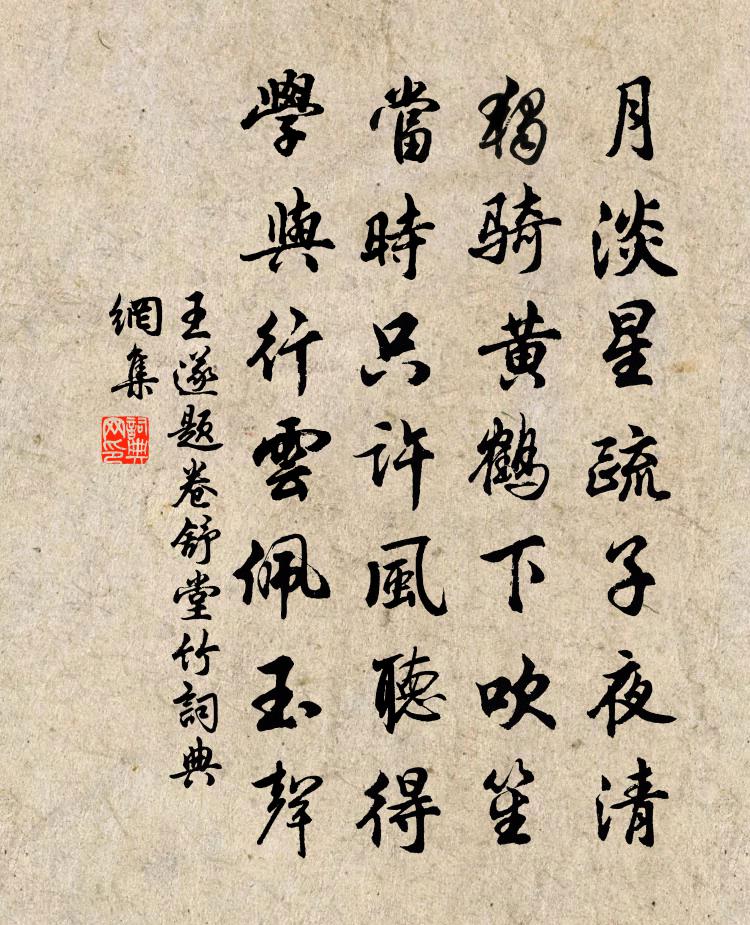 月淡星疏子夜清
獨騎黃鶴下吹笙
當時只許風聽得
學與行雲佩玉聲
王遂題卷舒堂竹詞典
網集
詞典
网印